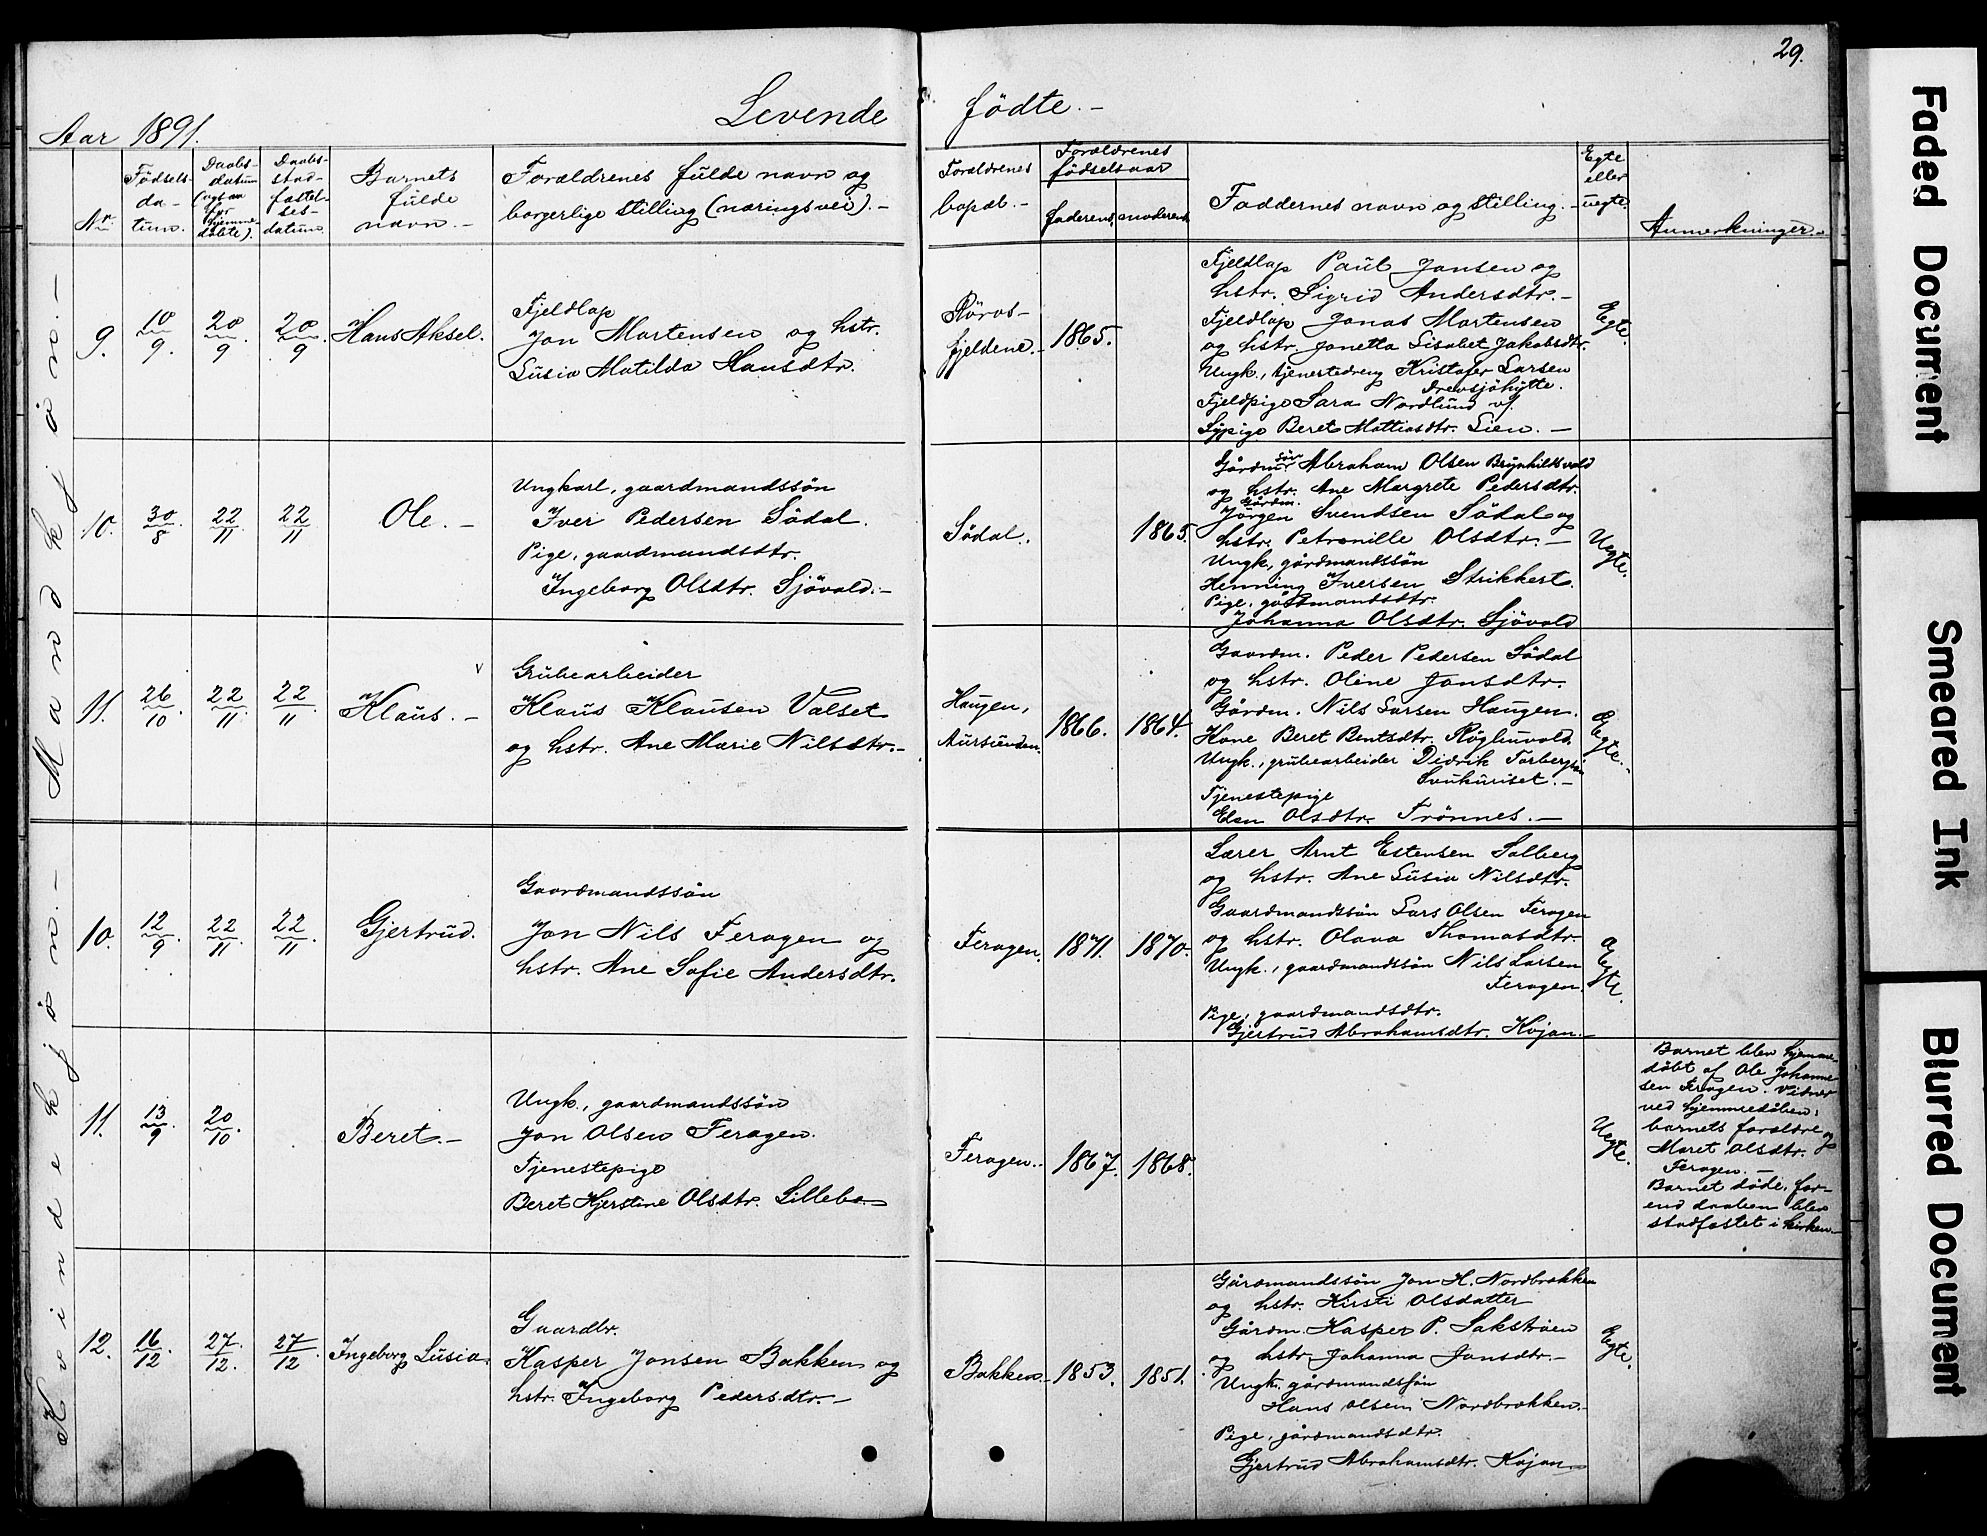 29.
Levende fødte.-
Aar 1891.
Nr.
Fødsels-
da-
tum.
Daabs-
datum
(ogsaa
for
hjemme-
døbte).
Daabs-
stad-
fæstel-
ses-
datum.
Barnets
fulde
navn.-
Forældrenes fulde navn og
borgerlige stilling (næringsvei).-
Forældrenes
bopæl.-
Forældrenes
fødselsaar
faderens.
moderens.
Faddernes navn og stilling.-
Egte
eller
uegte.
Anmerkninger.-
Mandkjøn.-
9.
10/9.
20/9.
20/9.
Hans Aksel.
Fjeldlap
Jon Mortensen og hstr.
Lusia Matilda Hansdtr.
Røros-
fjeldene.-
1865.
Fjeldlap Paul Jonsen og
hstr. Sigrid Andersdtr.-
Fjeldlap Jonas Mortensen
og hstr. Jonetta Lisabet Jakobsdtr.
Ungk., tjenestedreng Kristofer Larsen
Drevsjøhytte.
Fjeldpige Sara Nordlund
Sypige Beret Mattiasdtr. Lien.-
Egte.
10.
30/8.
22/11
22/11
Ole.-
Ungkarl, gaardmandssøn
Iver Pedersen Sødal.
Pige, gaardmandsdtr.
Ingeborg Olsdtr. Sjøvold.-
Sødal.
1865.
Gårdm.søn Abraham Olsen Brynhildsvold
og hstr. Ane Margrete Pedersdtr.
Gårdm.
Jørgen Svendsen Sødal og
hstr. Petronille Olsdtr.-
Ungk., gårdmandssøn
Henning Iversen Strikkert.
Pige, gårdmandsdtr.
Johanna Olsdtr. Sjøvold
Uegte.
11.
26/10.
22/11.
22/11.
Klaus.-
Grubearbeider
Klaus Klausen Valset
og hstr. Ane Marie Nilsdtr.-
Haugen,
Aursunden.
1866.
1864.
Gaardm. Peder Pedersen Sødal
og hstr. Oline Jonsdtr.
Gårdm. Nils Larsen Haugen.
Kone Beret Bentsdtr. Røgluvold.
Ungk., grubearbeider Didrik Torbergsen
Tjenestepige
Elen Olsdtr. Trønnes.-
Egte.-
Kvindekjøn.-
10.
12/9.
22/11.
22/11.
Gjertrud.
Gaardmandssøn
Jon Nils Feragen og
hstr. Ane Sofie Andersdtr.
Feragen.
1871.
1870.
Lærer Arnt Estensen Solberg
og hstr. Ane Lusia Nilsdtr.
Gaardmandssøn Lars Olsen Feragen
og hstr. Olava Thomasdtr.
Ungk., gaardmandssøn Nils Larsen
Feragen.
Pige, gaardmandsdtr.
Gjertrud Abrahamsdtr. Kojan.-
Egte.
11.
13/9
20/10.
Beret.-
Ungk., gaardmandssøn
Jon Olsen Feragen.
Tjenestepige
Beret Kjerstine Olsdtr. Lillebo.-
Feragen.
1867.
1868.
Uegte.
Barnet blev hjemme-
døbt af Ole Johanne-
sen Feragen. Vidner
ved hjemmedåben:
barnets forældre og
Maret Olsdtr.
Feragen.-
Barnet døde, før-
end daaben blev
stadfæstet i kirken.-
12.
16/12.
27/12.
27/12.
Ingeborg Lusia.
Gaardbr.
Kasper Jonsen Bakken og
hstr. Ingeborg Pedersdtr.-
Bakken.-
1853.
1851.
Gårdmandssøn Jon H. Nordbrekken
og hstr. Kirsti Olsdatter
Gårdm. Kasper P. Sakstrøen
og hstr. Johanna Jonsdtr.-
Ungk. gårdmandssøn
Hans Olsen Nordbrekken.-
Pige, gårdmandsdtr.
Gjertrud Abrahamsdtr. Kojan.
Egte.
Faded Document
Smeared Ink
Blurred Document